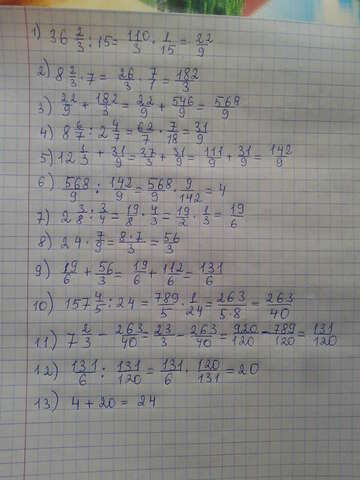 1) 36 2/3 : 15 = 110/3 · 1/15 = 22/9
2) 8 2/3 · 7 = 26/3 · 7/1 = 182/3
3) 22/9 + 182/3 = 22/9 + 546/9 = 568/9
4) 8 6/7 : 2 4/7 = 62/7 · 7/18 = 31/9
5) 12 1/3 + 31/9 = 37/3 + 31/9 = 111/9 + 31/9 = 142/9
6) 568/9 : 142/9 = 568/9 · 9/142 = 4
7) 2 3/8 : 3/4 = 19/8 · 4/3 = 19/2 · 1/3 = 19/6
8) 24 · 7/9 = 8·7/3 = 56/3
9) 19/6 + 56/3 = 19/6 + 112/6 = 131/6
10) 157 4/5 : 24 = 789/5 · 1/24 = 263/5·8 = 263/40
11) 7 2/3 - 263/40 = 23/3 - 263/40 = 920/120 - 789/120 = 131/120
12) 131/6 : 131/120 = 131/6 · 120/131 = 20
13) 4 + 20 = 24